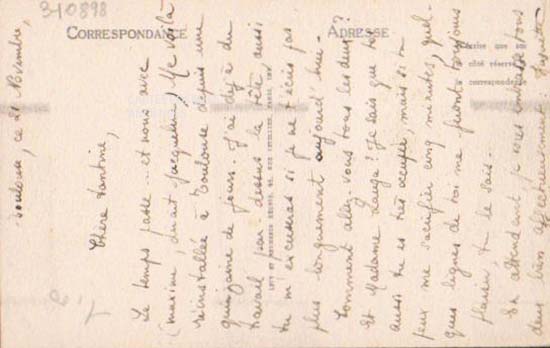 3-10898
CORRESPONDANCE
ADRESSE
Toulouse, ce 21 Novembre,
Chère Tantine,
Le temps passe... et nous avec
(maxime, dirait Jacqueline). Me voilà
réinstallée à Toulouse depuis une
quinzaine de jours. J'ai déjà du
travail par-dessus la tête aussi
tu m'excuseras si je ne t'écris pas
plus longuement aujourd'hui.
Comment allez-vous tous les deux?
Et Madame ? Je sais que toi
aussi tu es très occupée, mais si tu
peux me sacrifier cinq minutes, quel-
ques lignes de toi me feront toujours
plaisir, tu le sais.
En attendant je vous embrasse tous
deux bien affectueusement.